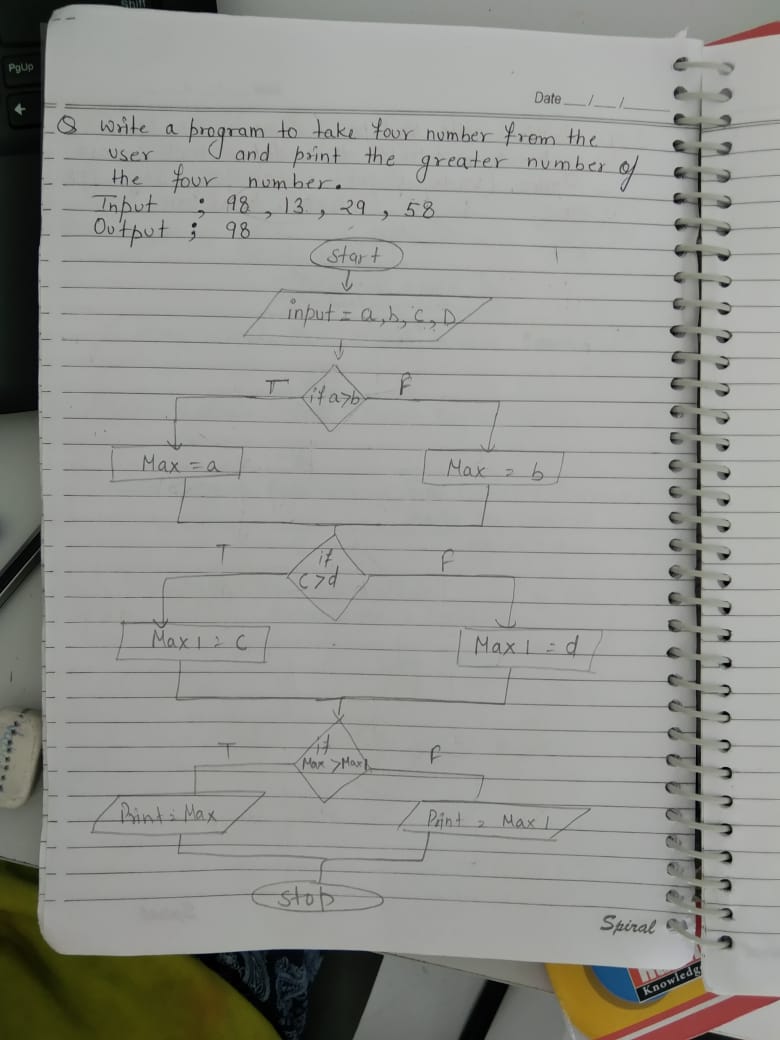 Shift
PgUp
Date __/__/____
Q write a program to take four number from the
user and print the greater number of
the four number.
Input ; 98 , 13 , 29 , 58
Output ; 98
Start
input = a, b, c, D
T if a>b F
Max = a Max = b
T if F
c >d
Max 1 = c Max 1 = d
T if F
Max >Max1
Print = Max Print = Max 1
stop
Spiral
Knowledg